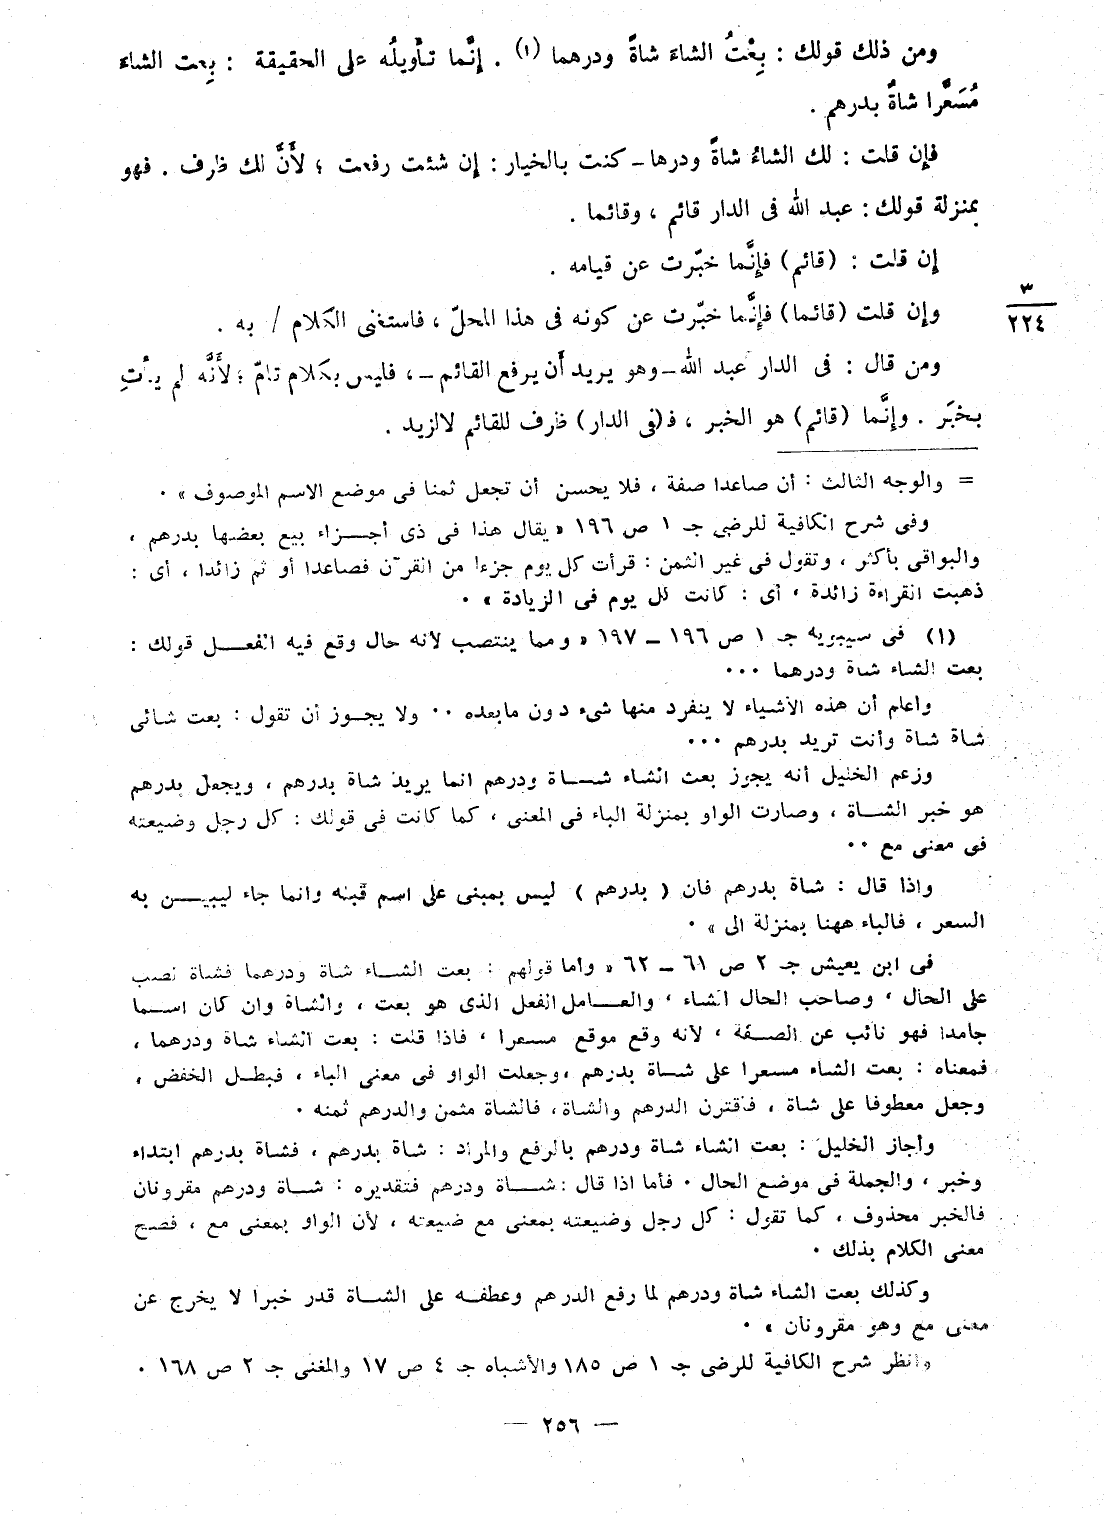 ومن ذلك قولك : بِعْتُ الشاءَ شاةً ودرهما (١) . إنَّما تأْويلُه على الحقيقة : بِعت الشاءَ
مُسَعَّرا شاةٌ بدرهم .
فإن قلت : لك الشاءُ شاةً ودرها ــ كنت بالخيار : إن شئت رفعت ؛ لأَنَّ لك ظرف . فهو
بمنزلة قولك : عبد الله فى الدار قائم ، وقائما .
إن قلت : (قائم) فإنَّما خبّرت عن قيامه .
وإن قلت (قائما) فإنَّما خبّرت عن كونه فى هذا المحلّ ، فاستغنى الكلام / به .
٣
٢٢٤
ومن قال : فى الدار عبد الله ــ وهو يريد أن يرفع القائم ــ ، فليس بكلام تامّ ؛ لأَنَّه لم يأْتِ
بخبَر . وإنَّما (قائم) هو الخبر ، فـ(فى الدار) ظرف للقائم لالزيد .
= والوجه الثالث : أن صاعدا صفة ، فلا يحسن أن تجعل ثمنا فى موضع الاسم الموصوف » .
وفى شرح الكافية للرضى جـ ١ ص ١٩٦ « يقال هذا فى ذى أجـزاء بيع بعضها بدرهم ،
والبواقى بأكثر ، وتقول فى غير الثمن : قرأت كل يوم جزءا من القرآن فصاعدا أو ثم زائدا ، أى :
ذهبت القراءة زائدة ، أى : كانت كل يوم فى الزيادة » .
(١) فى سيبويه جـ ١ ص ١٩٦ ــ ١٩٧ « ومما ينتصب لانه حال وقع فيه الفعـل قولك :
بعت الشاء شاة ودرهما ...
واعلم أن هذه الأشياء لا ينفرد منها شىء دون مابعده .. ولا يجـوز أن تقول : بعت شائى
شاة شاة وأنت تريد بدرهم ...
وزعم الخليل أنه يجوز بعت الشاء شـاة ودرهم انما يريد شاة بدرهم ، ويجعل بدرهم
هو خبر الشـاة ، وصارت الواو بمنزلة الباء فى المعنى ، كما كانت فى قولك : كل رجل وضيعته
فى معنى مع ..
واذا قال : شاة بدرهم فان ( بدرهم ) ليس بمبنى على اسم قبله وانما جاء ليبيـن به
السعر ، فالباء ههنا بمنزلة الى » .
فى ابن يعيش جـ ٢ ص ٦١ ــ ٦٢ « وأما قولهم : بعت الشـاء شاة ودرهما فشاة نصب
على الحال ، وصاحب الحال الشاء ، والعـامل الفعل الذى هو بعت ، والشاة وان كان اسـما
جامدا فهو نائب عن الصـفة ، لأنه وقع موقع مسعرا ، فاذا قلت : بعت الشاء شاة ودرهما ،
فمعناه : بعت الشاء مسعرا على شـاة بدرهم ، وجعلت الواو فى معنى الباء ، فبطـل الخفض ،
وجعل معطوفا على شاة ، فاقترن الدرهم والشاة ، فالشاة مثمن والدرهم ثمنه .
وأجاز الخليل : بعت الشاء شاة ودرهم بالرفع والمراد : شاة بدرهم ، فشاة بدرهم ابتداء
وخبر ، والجملة فى موضع الحال . فأما اذا قال : شـاة ودرهم فتقديره : شـاة ودرهم مقرونان
فالخبر محذوف ، كما تقول : كل رجل وضيعته بمعنى مع ضيعته ، لأن الواو بمعنى مع ، فصح
معنى الكلام بذلك .
وكذلك بعت الشاء شاة ودرهم لما رفع الدرهم وعطفـه على الشـاة قدر خبرا لا يخرج عن
معنى مع وهو مقرونان » .
وانظر شرح الكافية للرضى جـ ١ ص ١٨٥ والأشباه جـ ٤ ص ١٧ والمغنى جـ ٢ ص ١٦٨ .
— ٢٥٦ —